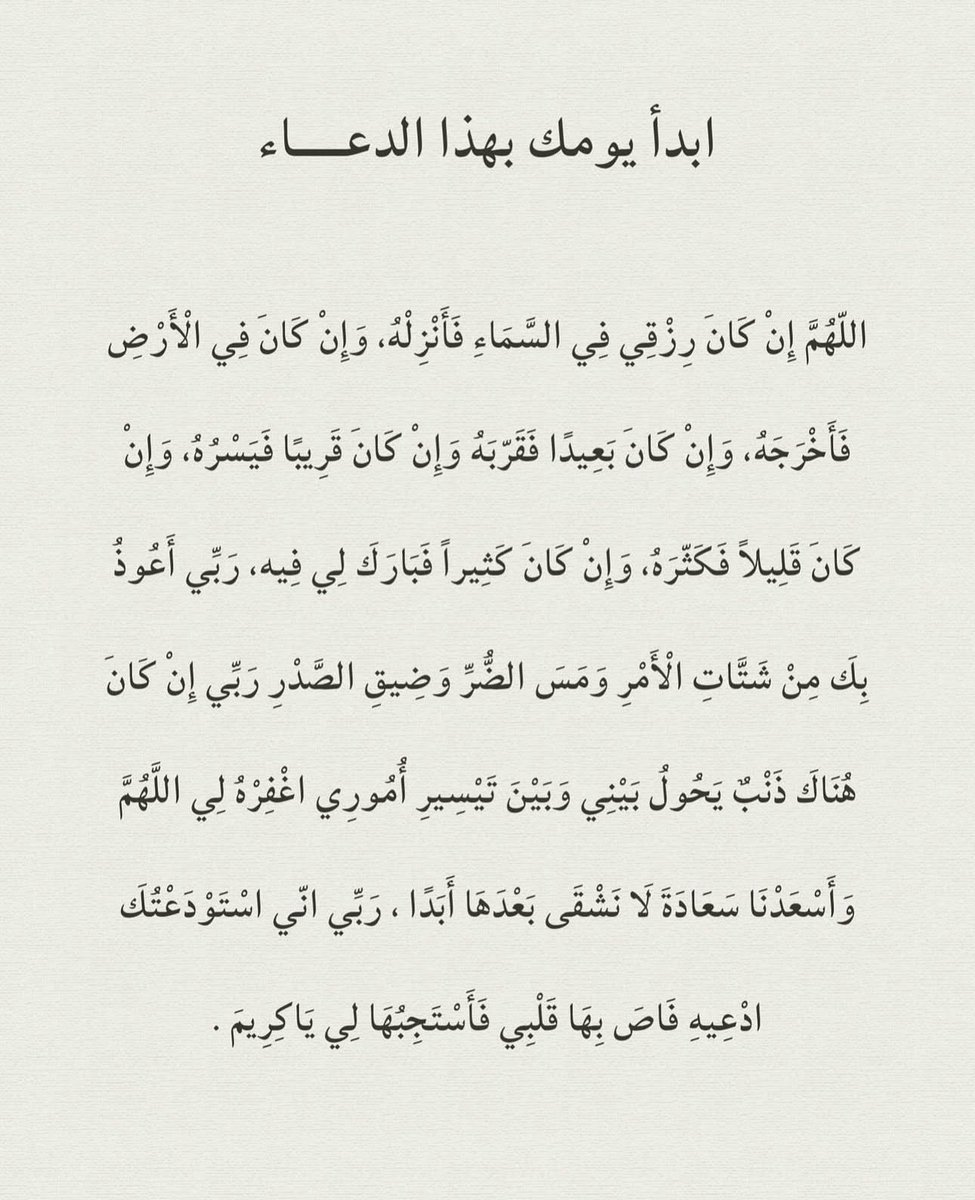 ابدأ يومك بهذا الدعـــاء
اللّهُمَّ إِنْ كَانَ رِزْقِي فِي السَّمَاءِ فَأَنْزِلْهُ، وَإِنْ كَانَ فِي الْأَرْضِ
فَأَخْرَجَهُ، وَإِنْ كَانَ بَعِيدًا فَقَرّبَهُ وَإِنْ كَانَ قَرِيبًا فَيَسْرُهُ، وَإِنْ
كَانَ قَلِيلاً فَكَثّرَهُ، وَإِنْ كَانَ كَثِيراً فَبَارَكَ لِي فِيه، رَبِّي أَعُوذُ
بِكَ مِنْ شَتَّاتِ الْأَمْرِ وَمَسَ الضُّرِّ وَضِيقِ الصَّدْرِ رَبِّي إِنْ كَانَ
هُنَاكَ ذَنْبٌ يَحُولُ بَيْنِي وَبَيْنَ تَيْسِيرِ أُمُورِي اغْفِرْهُ لِي اللَّهُمَّ
وَأَسْعَدْنَا سَعَادَةَ لَا نَشْقَى بَعْدَهَا أَبَدًا ، رَبِّي انّي اسْتَوْدَعْتُكَ
ادْعِيهِ فَاصَ بِهَا قَلْبِي فَأَسْتَجِبُهَا لِي يَاكِرِيمَ .